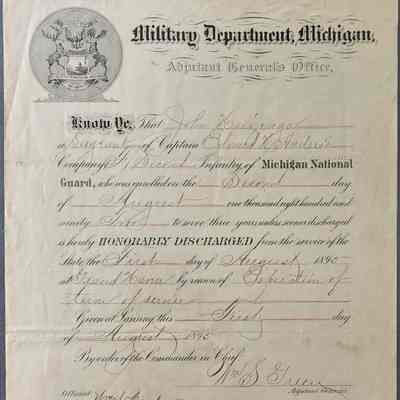 Military Department, Michigan,
Adjutant General's Office,
Know Ye, That John
a Sergeant of Captain Edward
Company F, Second Infantry of Michigan National
Guard, who was enrolled on the Second day
of August one thousand eight hundred and
ninety Two to serve three years unless sooner discharged
is hereby HONORABLY DISCHARGED from the service of the
State this First day of August 1895
at Grand Haven by reason of Expiration of
term of service
Given at Lansing this First day
of August 1895
By order of the Commander in Chief
Wm S. Green
Adjutant General
Official